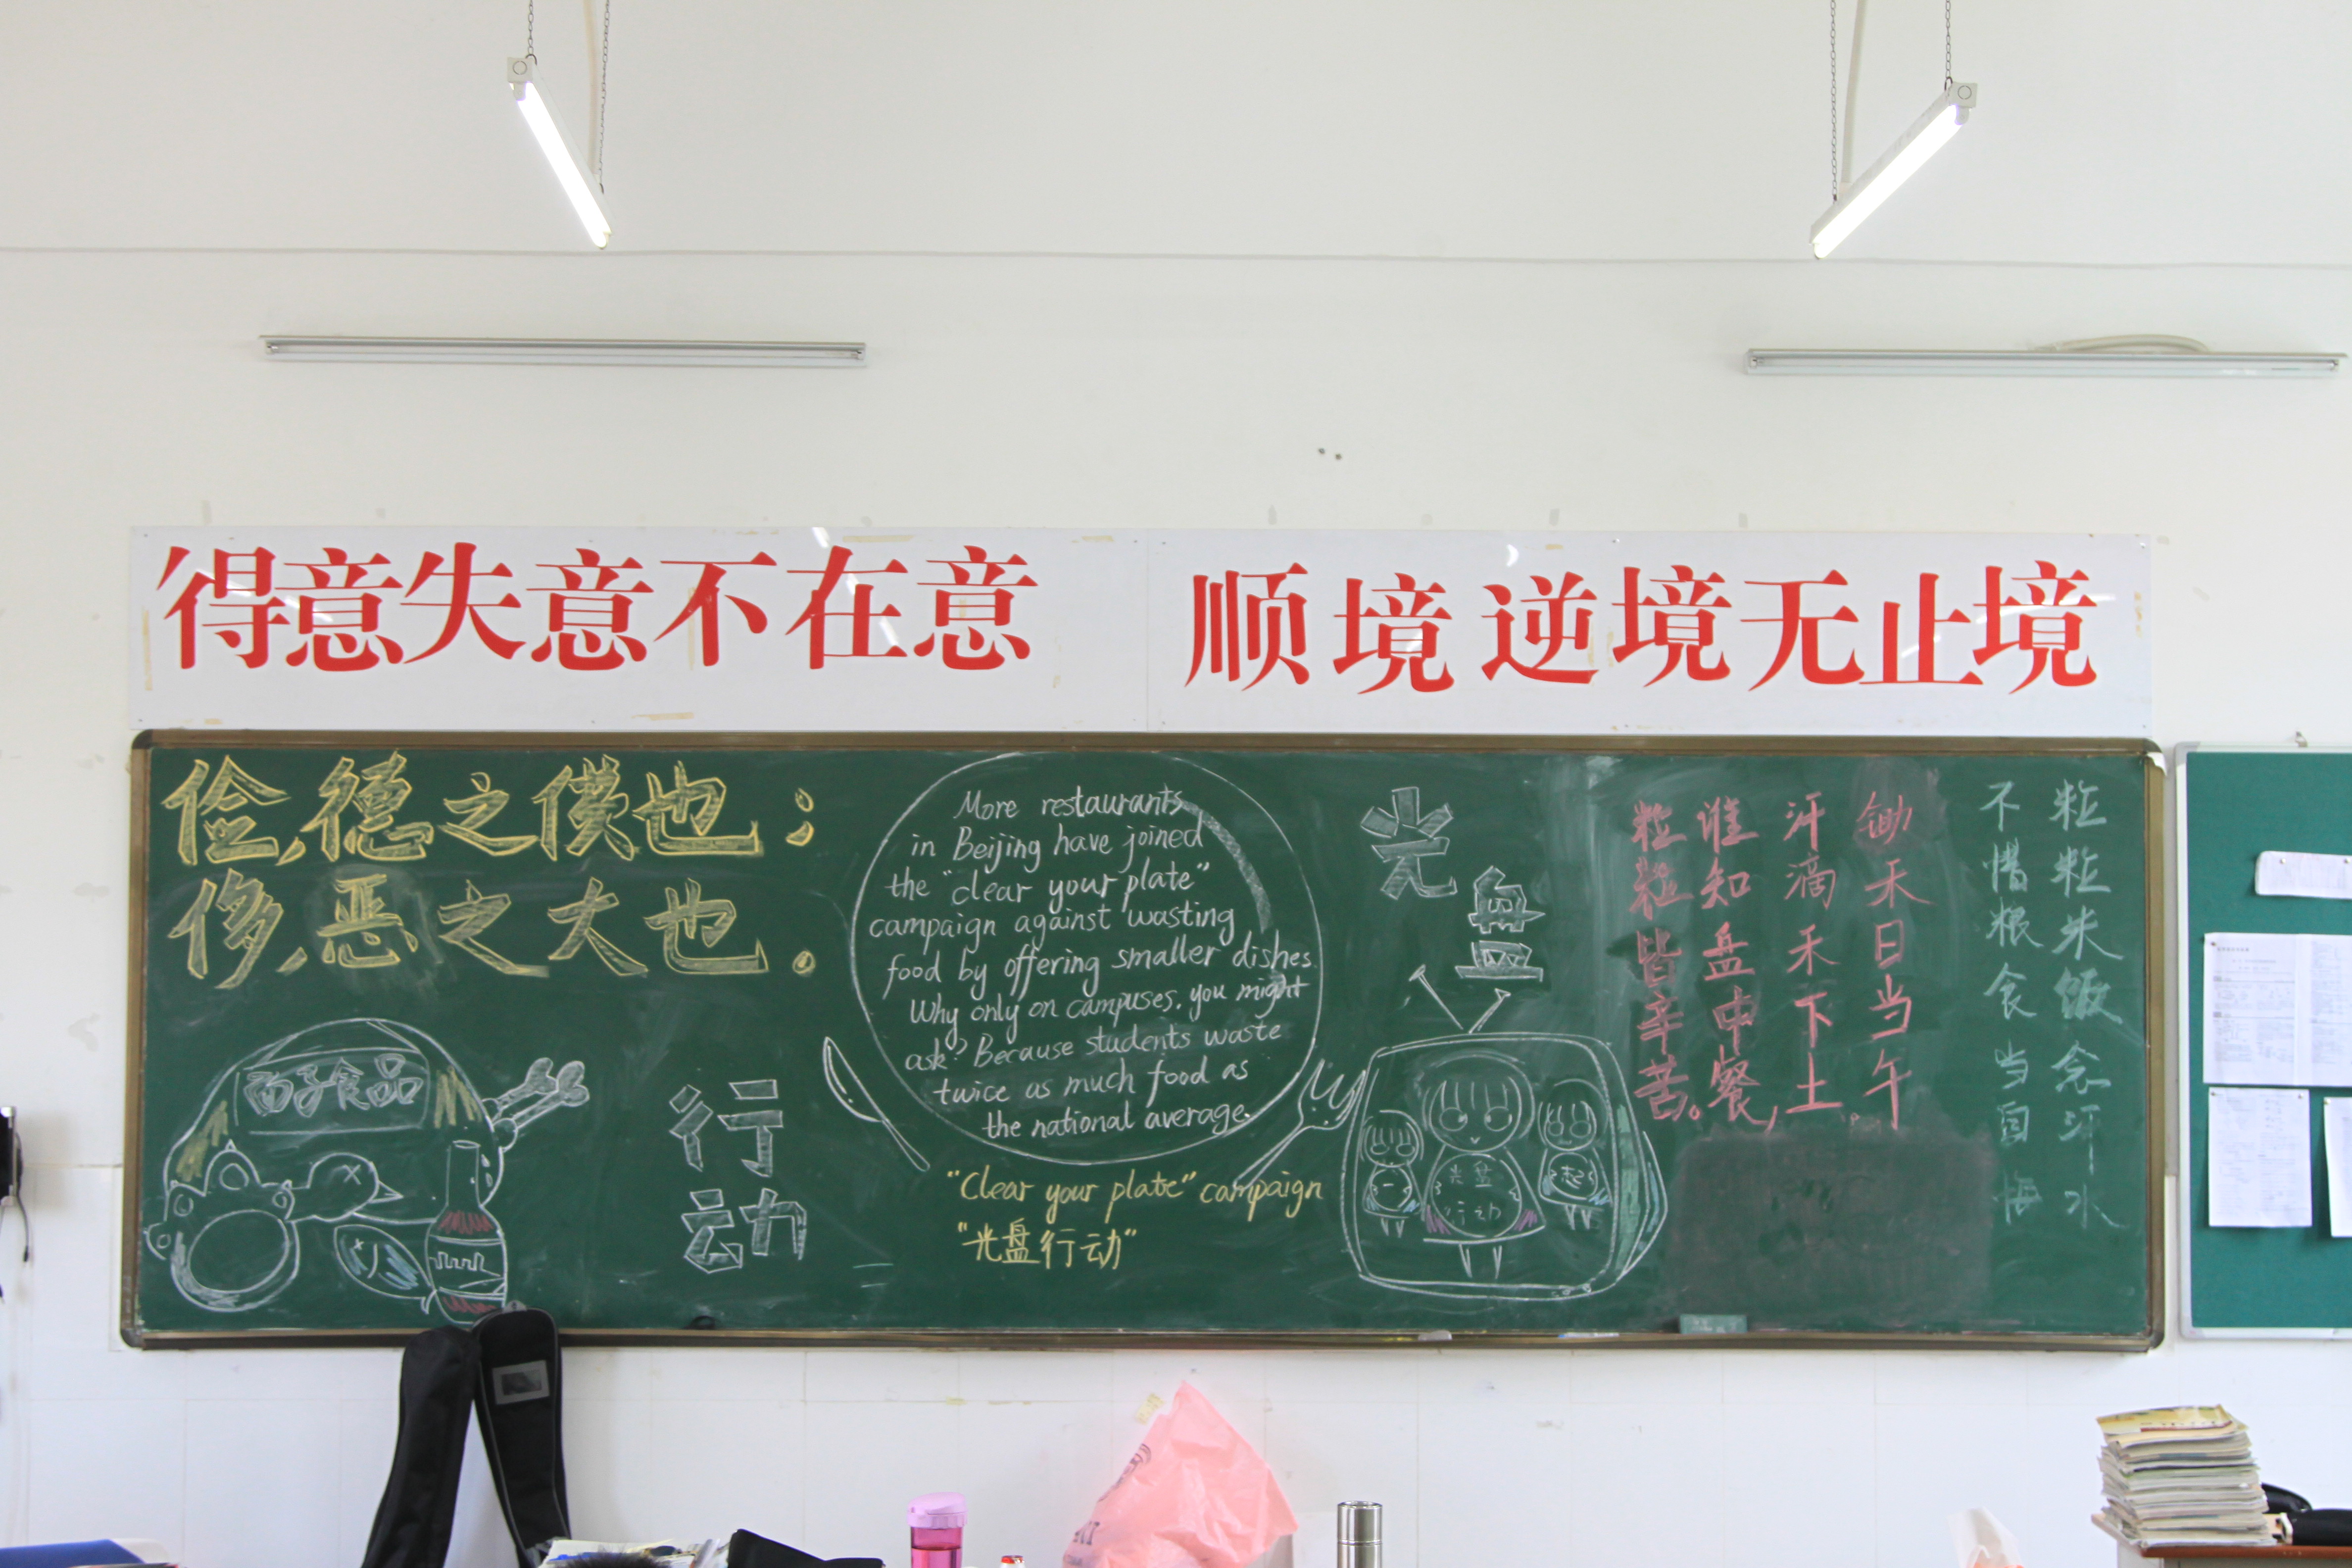 得意失意不在意
顺境逆境无止境
俭,德之 也;
侈,恶之大也。
面子食品
行动
More restaurants
in Beijing have joined
the "clear your plate"
campaign against wasting
food by offering smaller dishes.
Why only on campuses, you might
ask? Because students waste
twice as much food as
the national average.
"Clear your plate" campaign
"光盘行动"
光盘
一
光盘
行动
起
粒粒米饭念汗水
不惜粮食当自悔
锄禾日当午
汗滴禾下土。
谁知盘中餐,
粒粒皆辛苦。